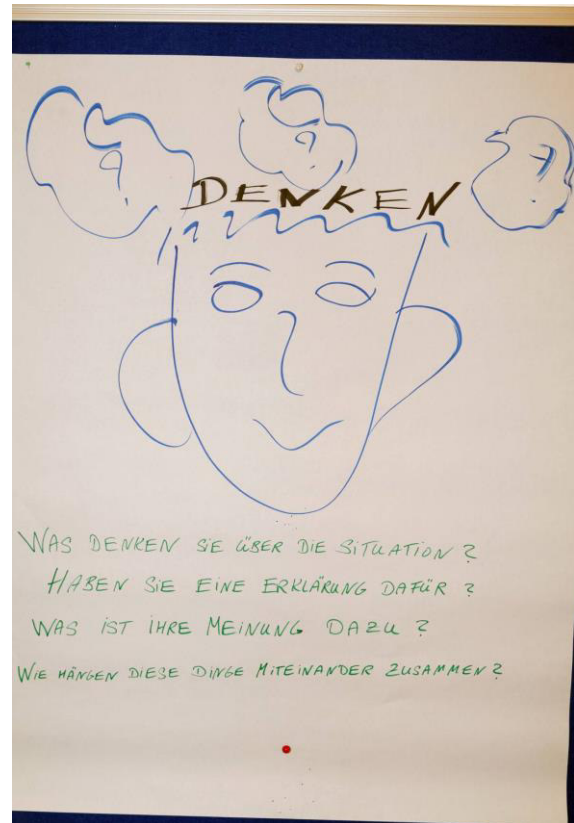 ?
?
?
DENKEN
WAS DENKEN SIE ÜBER DIE SITUATION?
HABEN SIE EINE ERKLÄRUNG DAFÜR?
WAS IST IHRE MEINUNG DAZU?
WIE HÄNGEN DIESE DINGE MITEINANDER ZUSAMMEN?